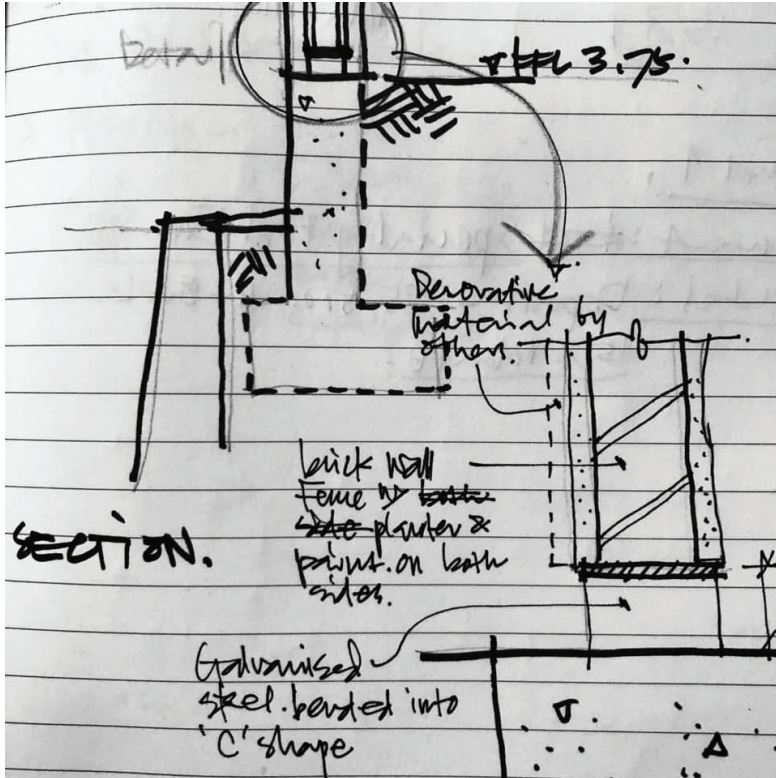 Detail
FFL 3.75.
Decorative
material by
others.
brick wall
Fence w/ both
side planter &
paint on both
sides.
SECTION.
Galvanised
steel bended into
'C' shape